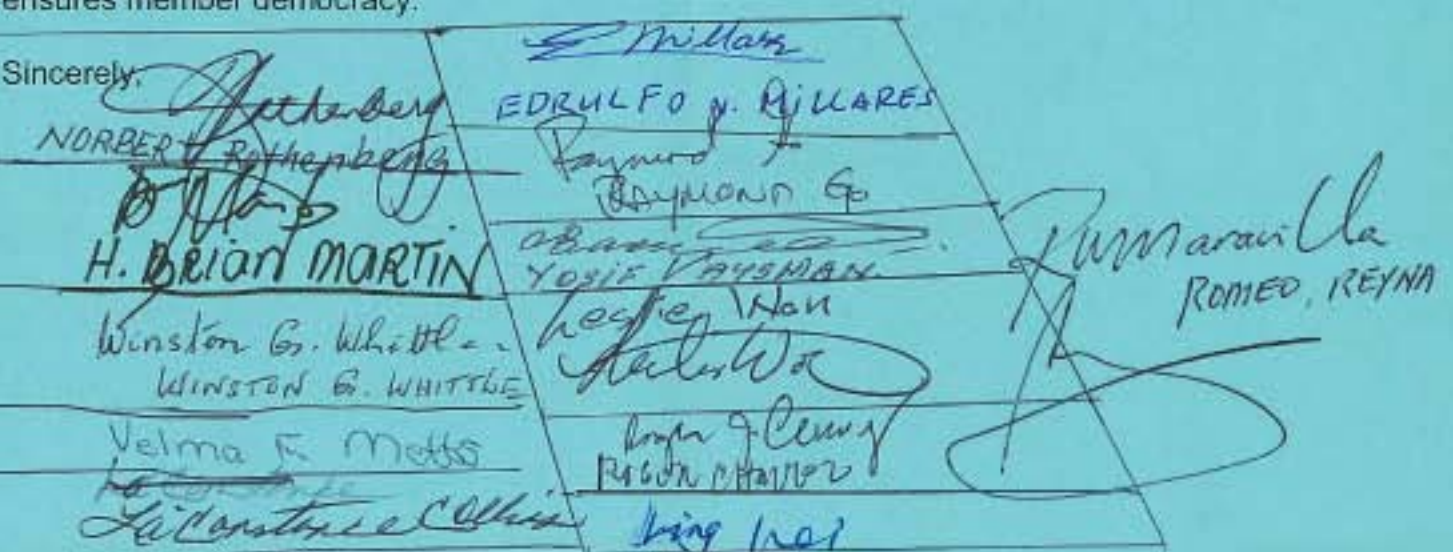 ensures member democracy.
Sincerely,
Rothenberg
NORBERT Rothenberg
H. BRIAN MARTIN
Winston G. Whittle
WINSTON G. WHITTLE
Velma F. Motto
La Constance Collins
Millares
EDRULFO MILLARES
Raymond
RAYMOND GO
YOSIF VAYSMAN
Leslie
Roger J.
ROGER
Maravilla
ROMEO, REYNA